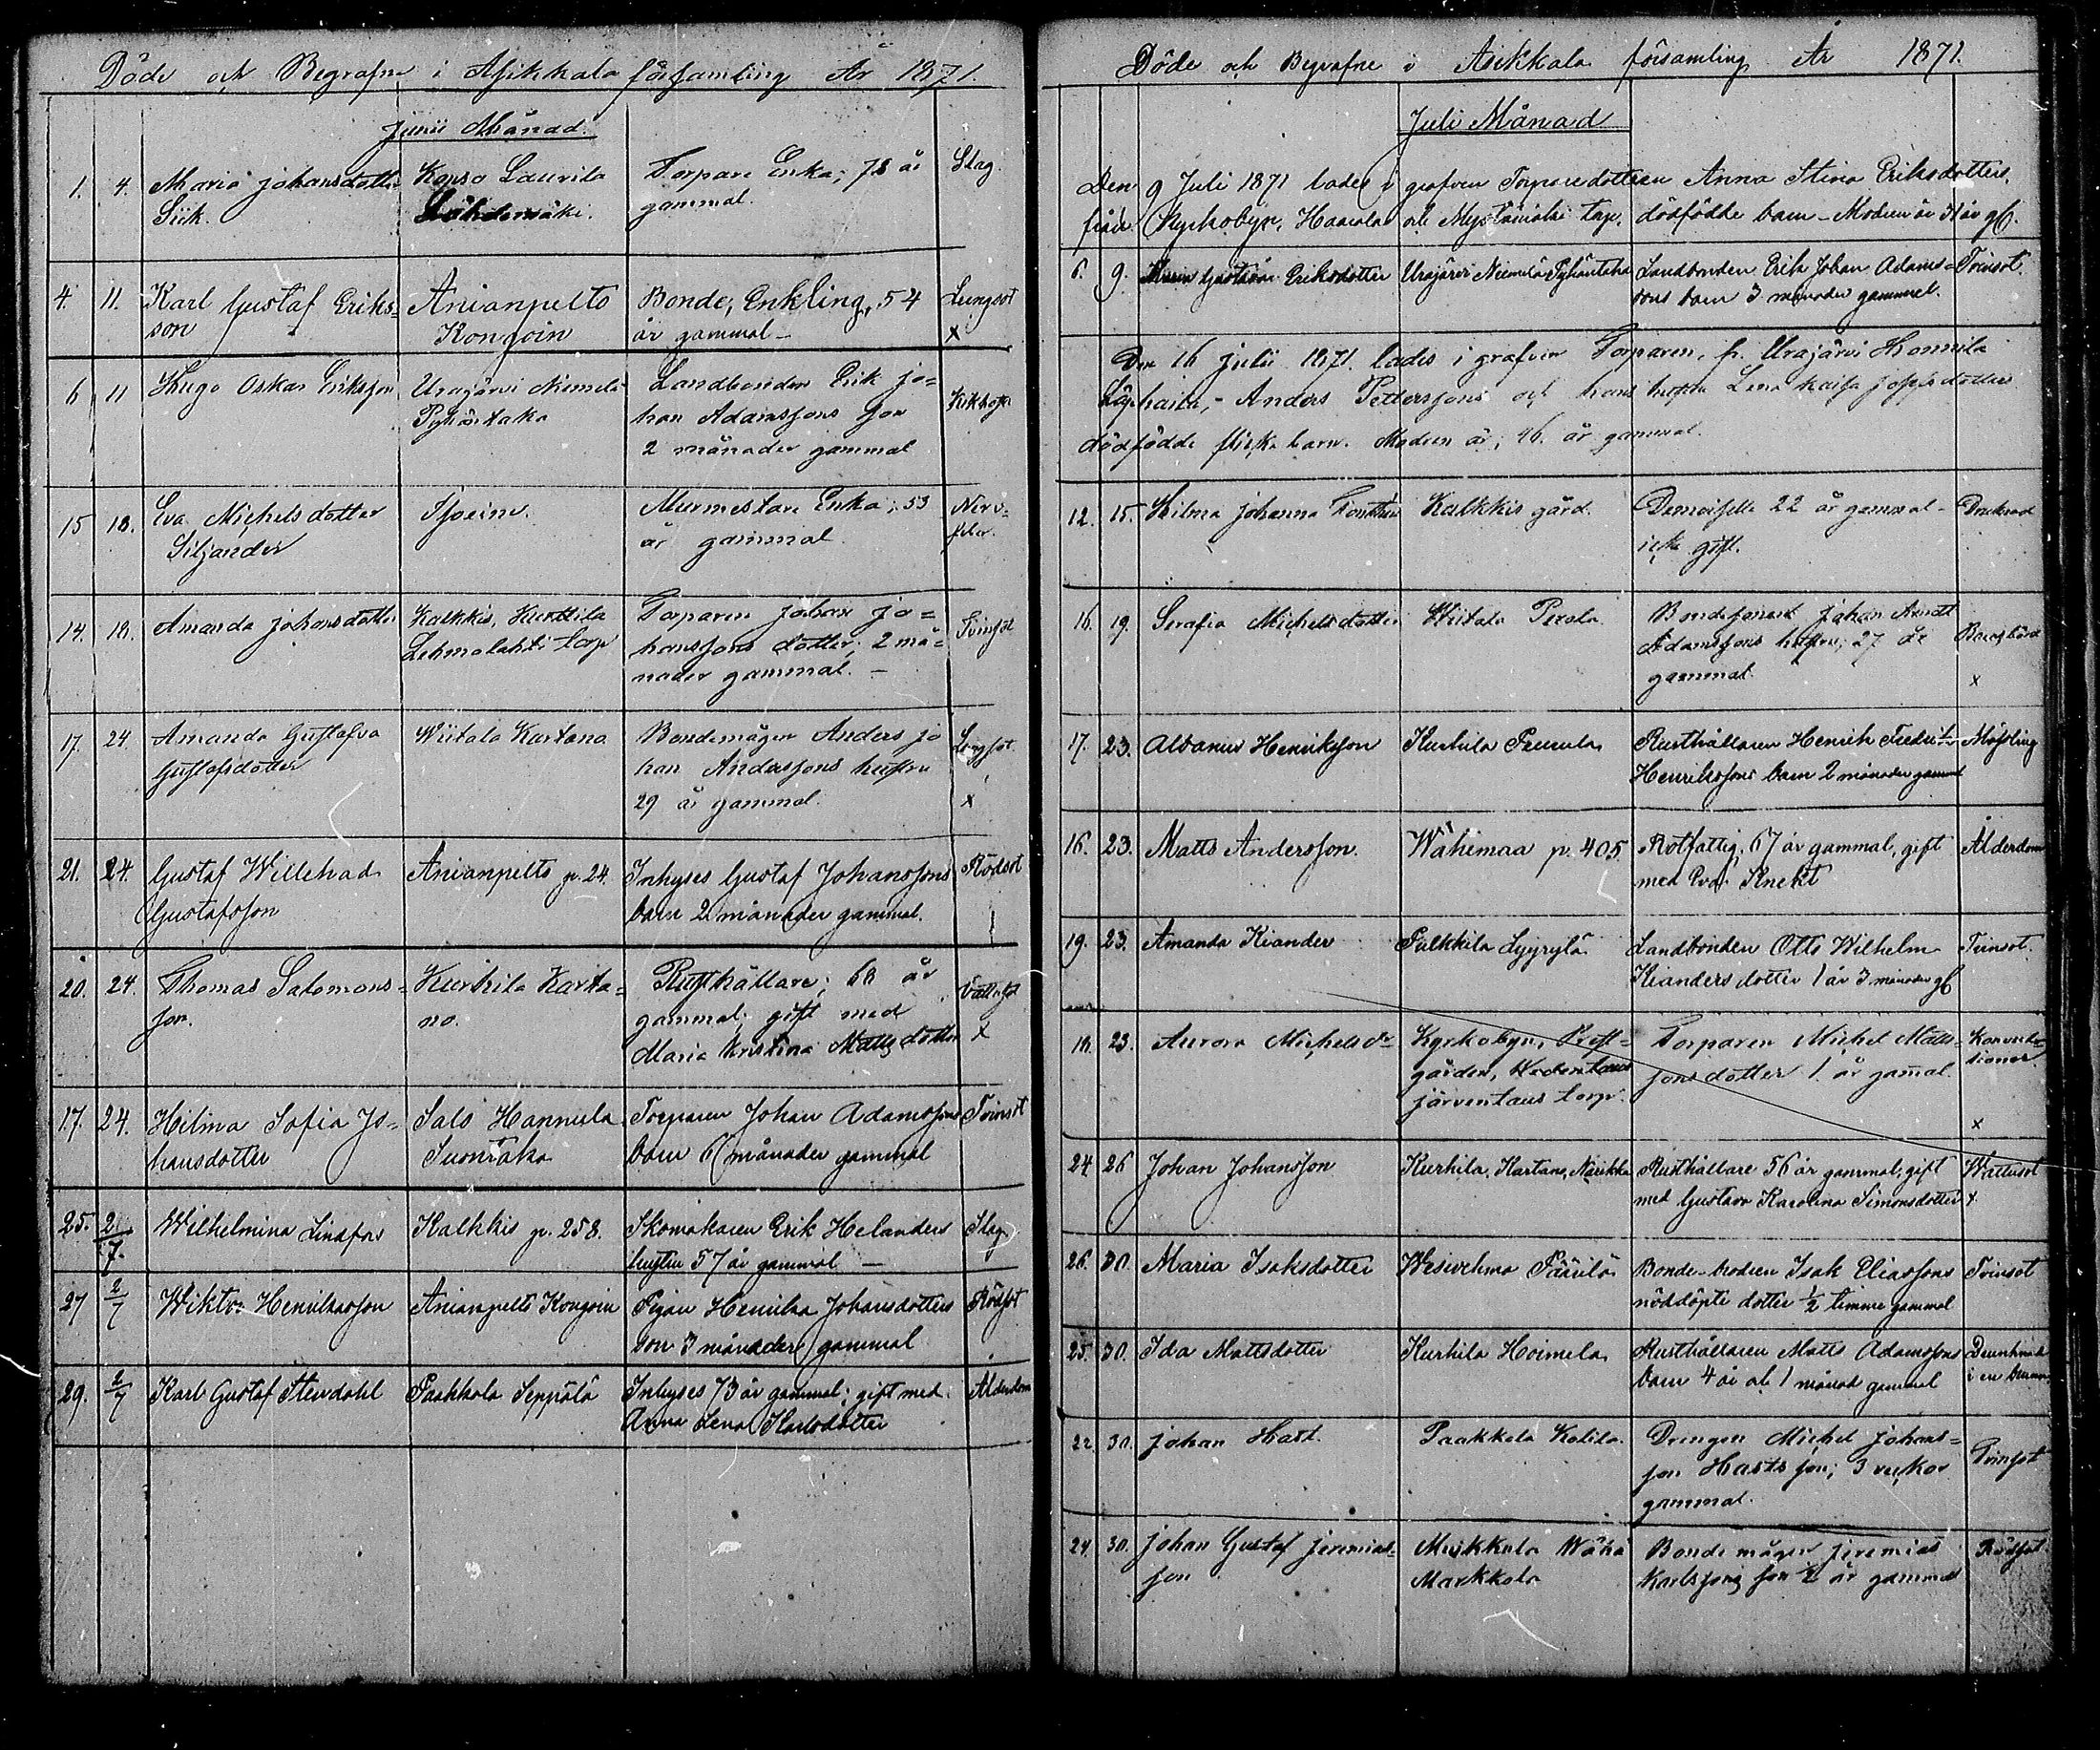 Döde och Begrafne i Asikkala församling År 1871.
Junii Månad.
1. 4. Maria Johansdotter Konso Laurila Torpare Enka; 78 år Slag.
Siik. Löhdemäki. gammal.
4. 11. Karl Gustaf Eriks= Anianpelto Bonde, Enkling, 54 Lungsot
son Kongoin år gammal — x
6 11 Hugo Oskar Eriksson Urajärvi Niemelä Landbonden Erik Jo= Kikhosta
Pyhäntaka han Adamssons son
2 månader gammal
15 18. Eva Michelsdotter Murmestare Enka; 53 Nerv=
Siljander år gammal feber.
14. 18. Amanda Johansdotter Kalkkis, Kurttila Torparen Johan Jo= Tvinsot
Lehmolahti torp hanssons dotter; 2 må=
nader gammal. —
17. 24. Amanda Gustafva Wiitala Kartano Bondemågen Anders Jo
Gustafsdotter han Anderssons hustru
29 år gammal. x
21. 24. Gustaf Willehad Anianpelto p. 24. Inhyses Gustaf Johanssons Rödsot
Gustafsson barn 2 månader gammal.
20. 24. Thomas Salomons= Kurhila Karta= Rusthållare; 68 år
son. no. gammal; gift med
Maria Kristina Mattsdotter x
17. 24. Hilma Sofia Jo= Salo Hannula Torparen Johan Adamssons Tvinsot
hansdotter Suontaka barn 6 månader gammal
25. 2/7. Wilhelmina Lindfors Kalkkis p. 258. Skomakaren Erik Helanders Slag
hustru 57 år gammal —
27 2/7 Wiktor Henriksson Anianpelto Kongoin Pigan Henrika Johansdotters Rödsot
son 3 månader gammal
29. 2/7 Karl Gustaf Stendahl Paakkola Seppälä Inhyses 73 år gammal; gift med Ålderdom
Anna Lena Karlsdotter
Döde och Begrafne i Asikkala församling År 1871.
Juli Månad
Den 9 Juli 1871 lades i grafven Torparedottren Anna Stina Eriksdotters,
från Kyrkobyn, Haarala och torp, dödfödde barn — Modren är 31 år gl.
6. 9. Gustava Eriksdotter Urajärvi Niemilä Pyhäntaka Landbonden Erik Johan Adams= Tvinsot.
sons barn 3 månader gammal.
Den 16 Julii 1871. lades i grafven Torparen, fr. Urajärvi
Anders Petterssons och hans hustru Lena Kaisa
dödfödde flicke barn. Modren är; 46. år gammal.
12. 15. Hilma Johanna Kalkkis gård. Demoiselle 22 år gammal — Drunknad
icke gift.
16. 19. Serafia Michelsdotter Wiitala Perola Johan
Adamssons hustru; 27 år Barnsbörd
gammal. x
17. 23. Albanus Henriksson Kurhila Rusthållaren Henrik Fredrik Mässling
Henrikssons barn 2 månader gammal
16. 23. Matts Andersson. Wähimaa p. 405. Rotfattig, 67 år gammal, gift Ålderdom
med Eva Knekt
19. 23. Amanda Kiander Pulkkila Lyyrylä Landbonden Otto Wilhelm Tvinsot.
Kianders dotter 1 år 3 månader gl
18. 23. Aurora Michelsdr Kyrkobyn, Prest= Torparen Michel Matts= Konvul=
gården, sons dotter 1. år gamal. sioner.
järventaus torp. x
24 26 Johan Johansson Kurhila, Kartano, Närikka Rusthållare 56 år gammal, gift Wattusot
med Gustava Karolina Simonsdotter x
26. 30. Maria Isaksdotter Wesivehma Päärilä Bonde-brodren Isak Eliassons Tvinsot
nöddöpte dotter 1/2 timme gammal
25. 30. Ida Mattsdotter Kurhila Hoimela Rusthållaren Matts Adamssons Drunknad
barn 4 år och 1 månad gammal i en brunn.
22. 30. Johan Hast. Paakkola Kalila Drengen Michel Johans= Tvinsot
son Hasts son; 3 veckor
gammal.
24. 30. Johan Gustaf Jeremias= Wähä Bonde mågen Jeremias Rödsot
son Markkola Karlssons son 2 år gammal